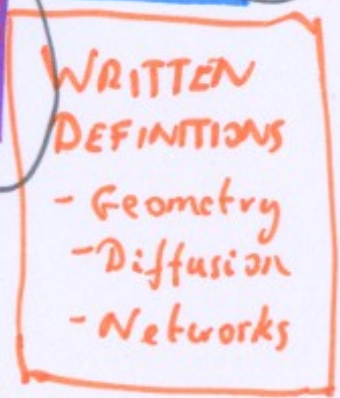 WRITTEN
DEFINITIONS
- Geometry
- Diffusion
- Networks